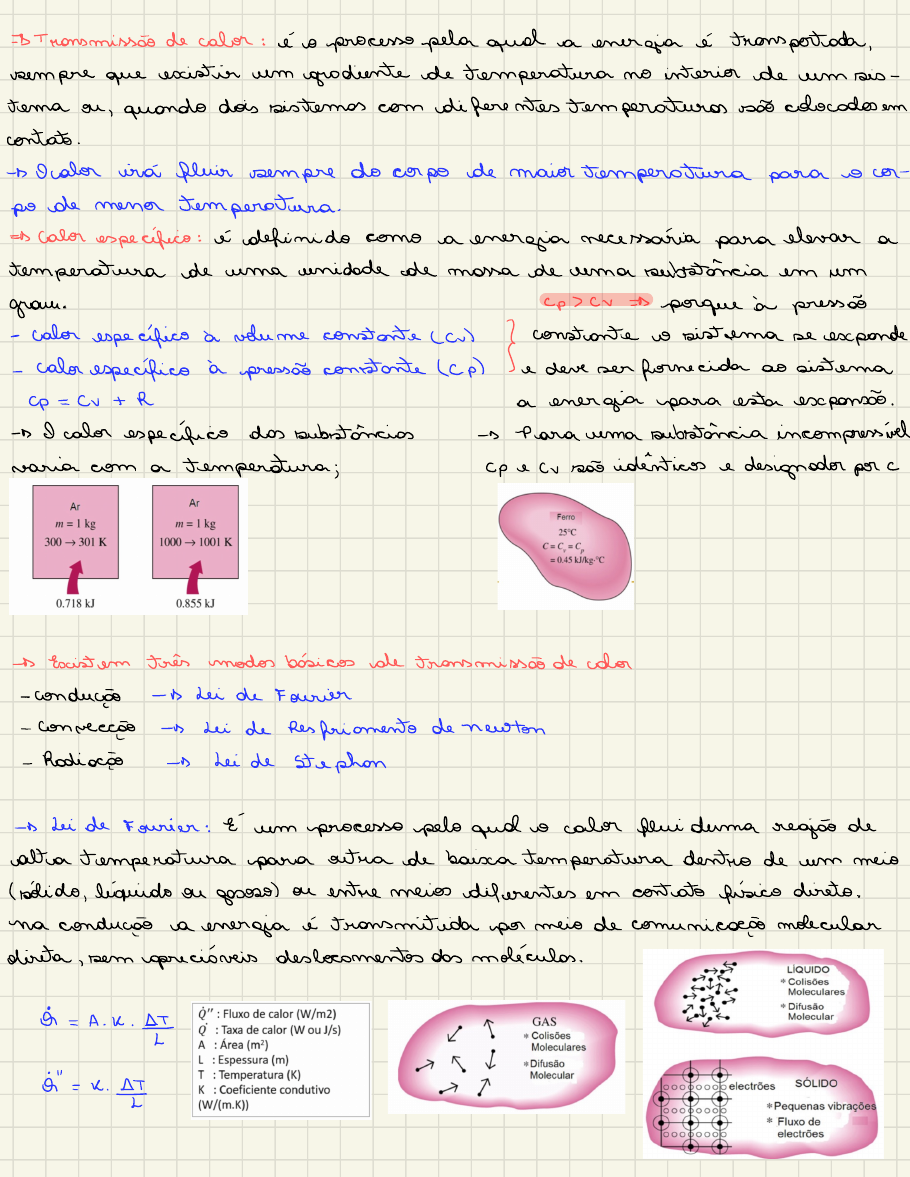 ⇒ Transmissão de calor: é o processo pela qual a energia é transportada,
sempre que existir um gradiente de temperatura no interior de um sis-
tema ou, quando dois sistemas com diferentes temperaturas são colocados em
contato.
→ O calor irá fluir sempre do corpo de maior temperatura para o cor-
po de menor temperatura.
⇒ Calor específico: é definido como a energia necessária para elevar a
temperatura de uma unidade de massa de uma substância em um
grau.
- Calor específico à volume constante (Cv)
- Calor específico à pressão constante (Cp)
Cp = Cv + R
Cp > Cv ⇒ porque à pressão
constante o sistema se expande
e deve ser fornecida ao sistema
a energia para esta expansão.
→ O calor específico das substâncias
varia com a temperatura;
→ Para uma substância incompressível
Cp e Cv são idênticos e designador por c
Ar
m = 1 kg
300 → 301 K
0.718 kJ
Ar
m = 1 kg
1000 → 1001 K
0.855 kJ
Ferro
25°C
C = Cv = Cp
= 0.45 kJ/kg·°C
→ Existem três modos básicos de transmissão de calor
- Condução → Lei de Fourier
- Convecção → Lei de Resfriamento de Newton
- Radiação → Lei de Stephan
→ Lei de Fourier: É um processo pelo qual o calor flui duma região de
alta temperatura para outra de baixa temperatura dentro de um meio
(sólido, líquido ou gasoso) ou entre meios diferentes em contato físico direto.
Na condução a energia é transmitida por meio de comunicação molecular
direta, sem apreciáveis deslocamentos das moléculas.
Q̇ = A. K. ΔT/L
Q̇'' = K. ΔT/L
Q̇'' : Fluxo de calor (W/m2)
Q̇ : Taxa de calor (W ou J/s)
A : Área (m²)
L : Espessura (m)
T : Temperatura (K)
K : Coeficiente condutivo
(W/(m.K))
GAS
* Colisões
Moleculares
* Difusão
Molecular
LÍQUIDO
* Colisões
Moleculares
* Difusão
Molecular
electrões
SÓLIDO
* Pequenas vibrações
* Fluxo de
electrões